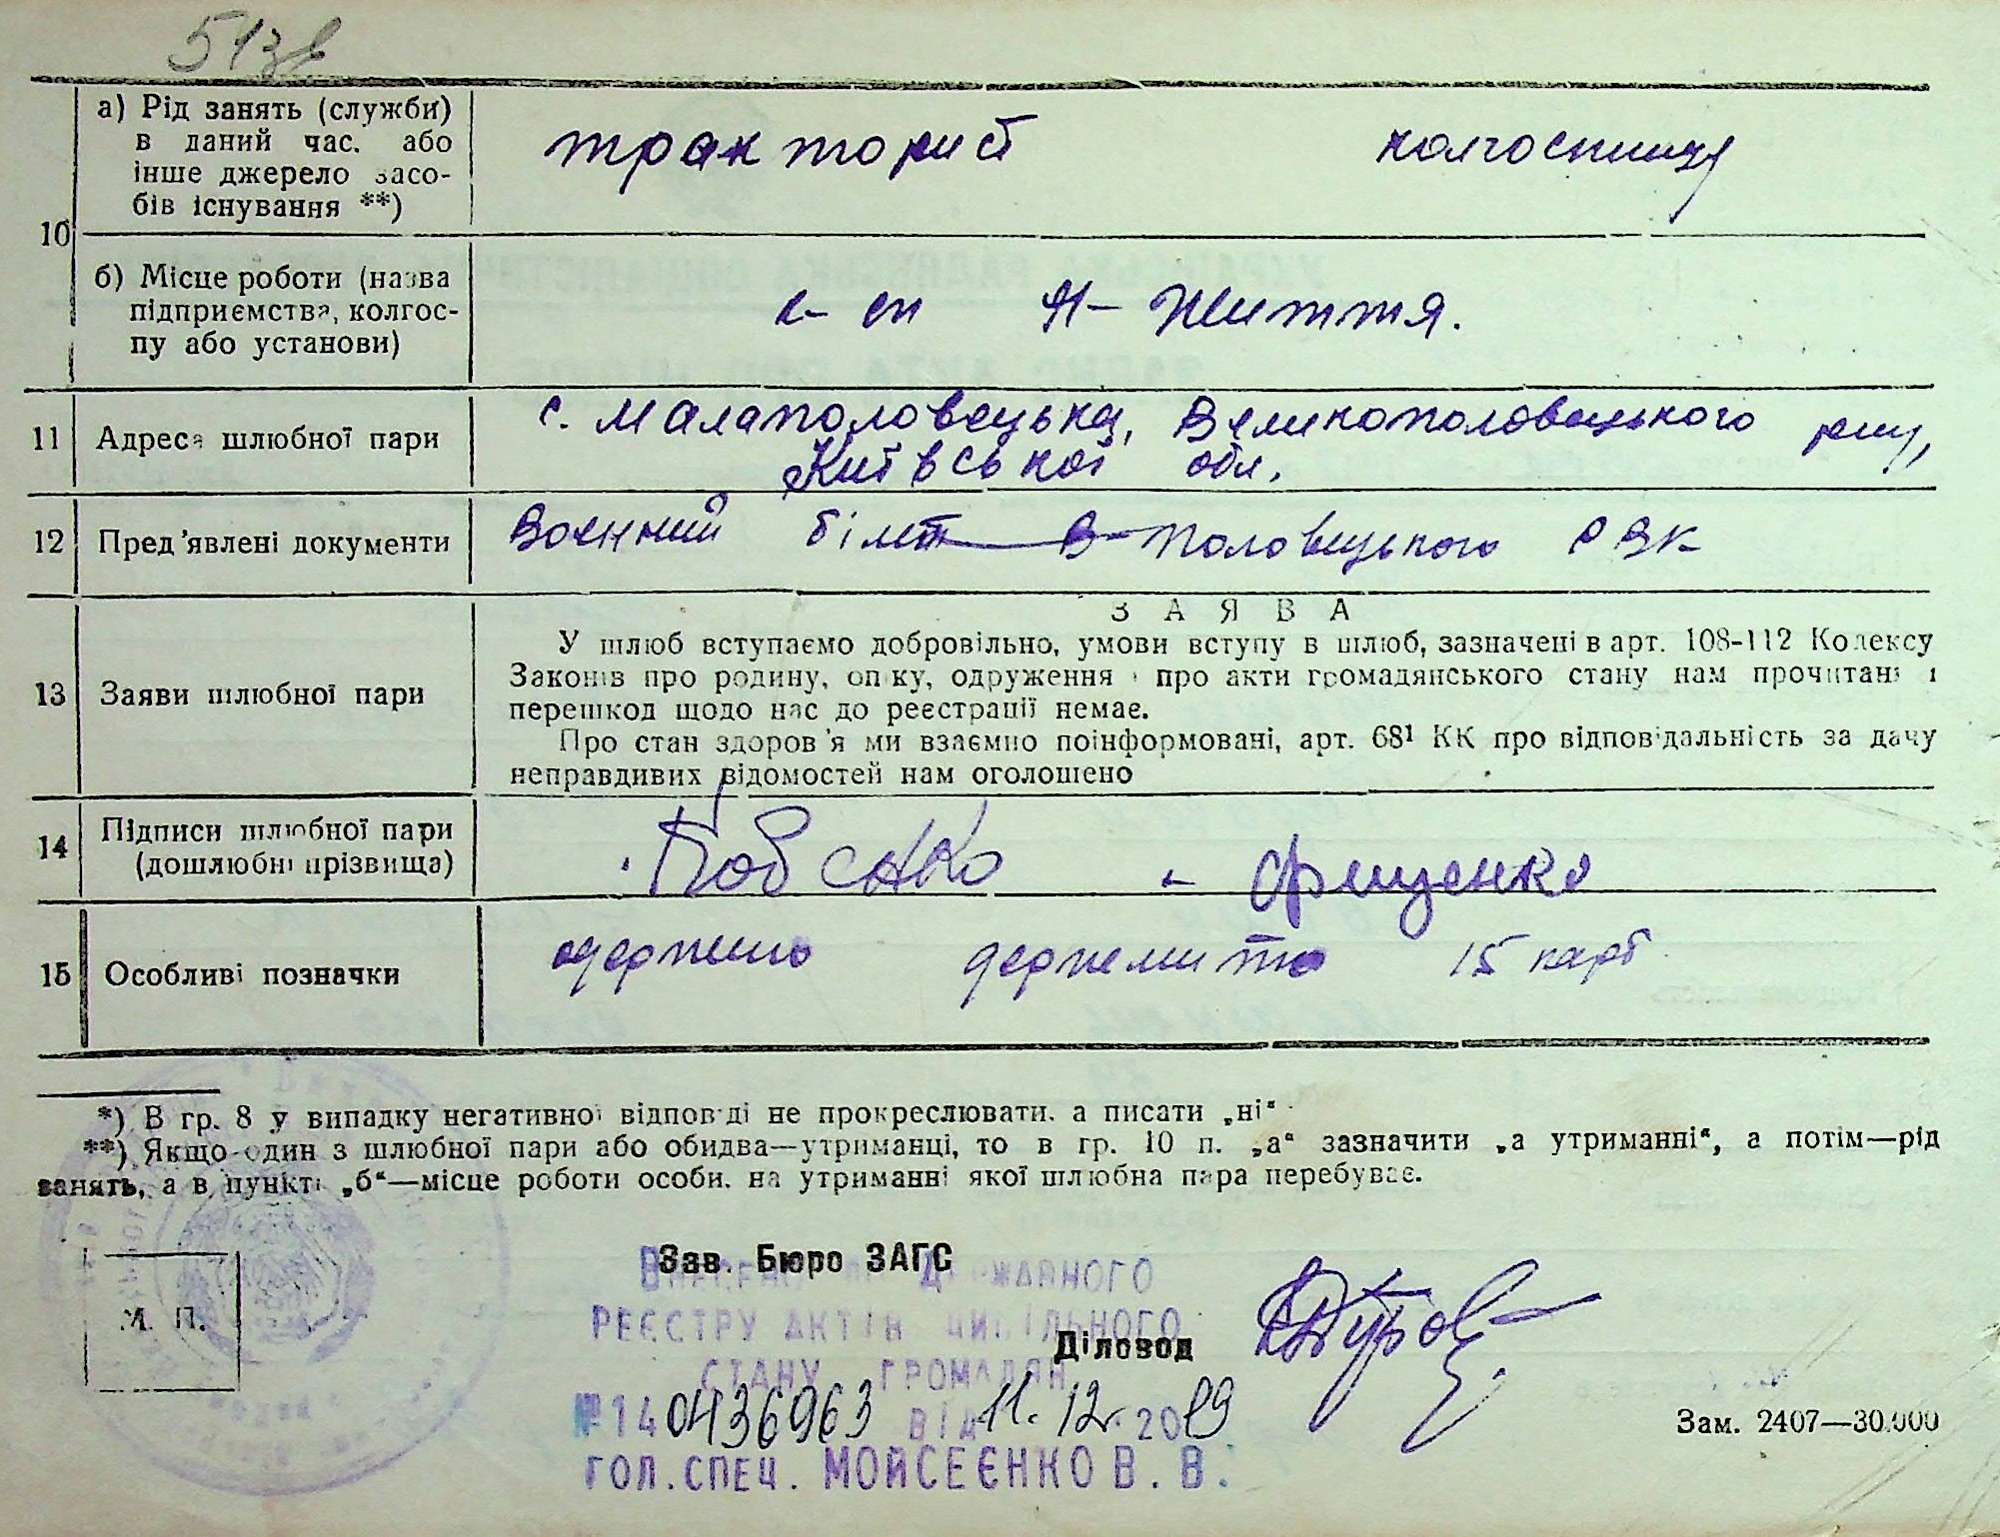 513в
10
а) Рід занять (служби)
в даний час, або
інше джерело засо-
бів існування **)
тракторист колгоспниця
б) Місце роботи (назва
підприємства, колгос-
пу або установи)
к-сп Н-Життя.
11 Адреса шлюбної пари
с. Малаполовецька, Великополовецького р-ну,
Київської обл.
12 Пред'явлені документи Воєнний білет В-Половецького РВК
13 Заяви шлюбної пари
ЗАЯВА
У шлюб вступаємо добровільно, умови вступу в шлюб, зазначені в арт. 108-112 Кодексу
Законів про родину, опіку, одруження і про акти громадянського стану нам прочитані і
перешкод щодо нас до реєстрації немає.
Про стан здоров'я ми взаємно поінформовані, арт. 68¹ КК про відповідальність за дачу
неправдивих відомостей нам оголошено
14 Підписи шлюбної пари
(дошлюбні прізвища)
Бабенко - Фищенко
15 Особливі позначки
одержано держмито 15 карб
*) В гр. 8 у випадку негативної відповіді не прокреслювати, а писати „ні“
**) Якщо один з шлюбної пари або обидва—утриманці, то в гр. 10 п. „а“ зазначити „а утриманні“, а потім—рід
занять, а в пункті „б“—місце роботи особи, на утриманні якої шлюбна пара перебуває.
М. П.
Зав. Бюро ЗАГС
Діловод
Внесено до Державного
реєстру актів цивільного
стану громадян
№ 140436963 від 11.12.2019
гол.спец. Мойсеєнко В.В.
Зам. 2407—30.000